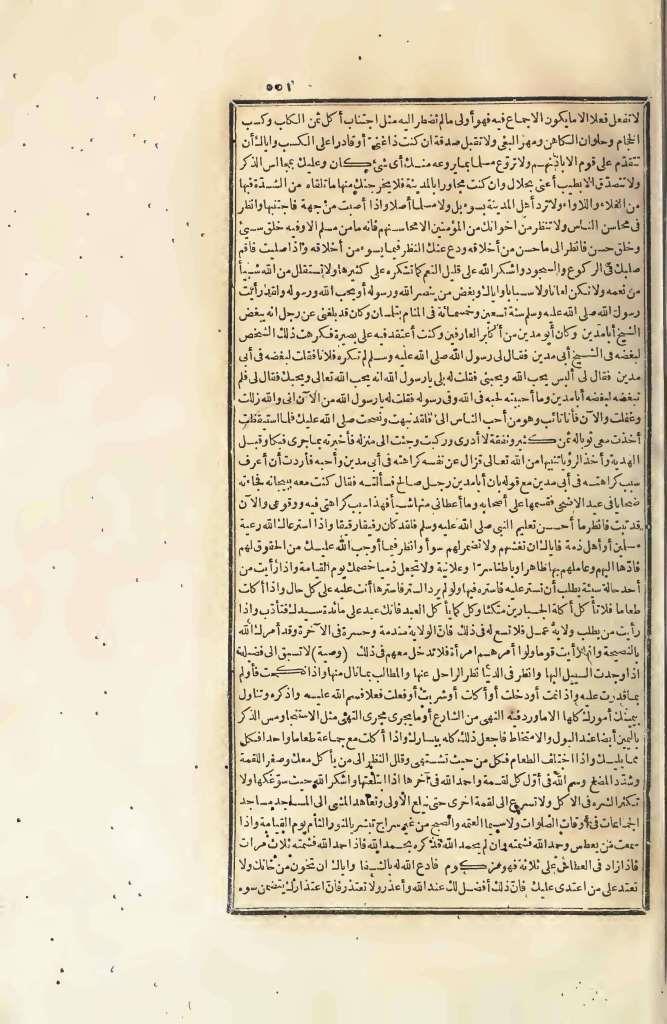 ٥٥١
لا تفعل فعلا الا ما يكون الاجماع فيه فهو أولى مالم تضطر اليه مثل اجتناب أكل ثمن الكلب وكسب
الحجام وحلوان الكاهن ومهر البغى ولا تقبل صدقة ان كنت ذا غنى أو قادرا على الكسب واياك أن
تتقدم على قوم الا باذنهم ولا تروع مسلما بما يروعه منك أى شئ كان وعليك بمجالس الذكر
ولا تتصدق الا بطيب أعنى بحلال وان كنت مجاورا بالمدينة فلا يخرجنك منها ما تلقاه من الشدة فيها
من الغلاء واللاواء ولا ترد أهل المدينة بسوء بل ولا مسلما أصلا واذا أصبت من جهة فاجتنبها وانظر
فى محاسن الناس ولا تنظر من اخوانك من المؤمنين الا محاسنهم فانه ما من مسلم الا وفيه خلق سيئ
وخلق حسن فانظر الى ما حسن من أخلاقه ودع عنك النظر فيما يسوء من أخلاقه واذا صليت فاقم
صلبك فى الركوع والسجود واشكر الله على قليل النعم كما تشكره على كثيرها ولا تستقلل من الله شيأ
من نعمه ولا تكن لعانا ولا سبابا واياك وبغض من ينصر الله ورسوله أو يحب الله ورسوله ولقد رأيت
رسول الله صلى الله عليه وسلم سنة تسعين وخمسمائة فى المنام بتلمسان وكان قد بلغنى عن رجل انه يبغض
الشيخ أبا مدين وكان أبو مدين من أكابر العارفين وكنت أعتقد فيه على بصيرة فكرهت ذلك الشخص
لبغضه فى الشيخ أبى مدين فقال لى رسول الله صلى الله عليه وسلم لم تكره فلانا فقلت لبغضه فى أبى
مدين فقال لى أليس يحب الله ويحبنى فقلت له بلى يارسول الله انه يحب الله تعالى ويحبك فقال لى فلم
تبغضه لبغضه أبا مدين وما أحببته لحبه فى الله وفى رسوله فقلت له يارسول الله من الآن انى والله زللت
وغفلت والآن فأنا تائب وهو من أحب الناس الى فلقد نبهت ونصحت صلى الله عليك فلما استيقظت
أخذت معى ثوبا له ثمن كثير ونفقة لا أدرى وركبت وجئت الى منزله فأخبرته بما جرى فبكا وقبل
الهدية وأخذ الرؤيا تنبيها من الله تعالى فزال عن نفسه كراهته فى أبى مدين وأحبه فأردت أن أعرف
سبب كراهته فى أبى مدين مع قوله بأن أبا مدين رجل صالح فسألته فقال كنت معه ببجاية فجاءته
ضحايا فى عيد الاضحى فقسمها على أصحابه وما أعطانى منها شيأ فهذا سبب كراهتى فيه ووقوعى والآن
قد تبت فانظر ما أحسن تعليم النبى صلى الله عليه وسلم فلقد كان رفيقا رقيقا واذا استرعاك الله رعية
مسلمين أو أهل ذمة فاياك ان تغشهم ولا تضمر لهم سوأ وانظر فيما أوجب الله عليك من الحقوق لهم
فأدها اليهم وعاملهم بها ظاهرا وباطنا سرا وعلانية ولا تجعل ذميا خصمك يوم القيامة واذا رأيت من
أحد حالة سيئة يطلب أن تستر عليه فاستره فيها ولو لم يرد الستر فاسترها أنت عليه على كل حال واذا أكلت
طعاما فلا تأكل أكلة الجبارين متكئا وكل كما يأكل العبد فانك عبد على مائدة سيدك فتأدب واذا
رأيت من يطلب ولاية عمل فلا تسع له فى ذلك فان الولاية مندمة وحسرة فى الآخرة وقد أمرك الله
بالنصيحة واذا رأيت قوما ولوا أمرهم امرأة فلا تدخل معهم فى ذلك (وصية) لا تسبق الى فضيلة
اذا وجدت السبيل اليها وانظر فى الدنيا نظر الراحل عنها والمطالب بما نال منها واذا نكحت فأولم
بما قدرت عليه واذا نمت أو دخلت أو أكلت أو شربت أو فعلت فعلا فسم الله عليه واذكره وتناول
بيمينك أمورك كلها الا ما ورد فيه النهى من الشارع أو ما يجرى مجرى النهى مثل الاستنجاء ومس الذكر
باليمين أيضا عند البول والامتخاط فاجعل ذلك كله بيسارك واذا أكلت مع جماعة طعاما واحدا فكل
مما يليك واذا اختلف الطعام فكل من حيث تشتهى وقلل النظر الى من يأكل معك وصغر اللقمة
وشدد المضغ وسم الله فى أول كل لقمة واحمد الله فى آخرها اذا ابتلعتها واشكر الله حيث سوغكها ولا
تكثر الشره فى الاكل ولا تسرع الى لقمة اخرى حتى تبلع الاولى وتعاهد المشى الى المساجد مساجد
الجماعات فى أوقات الصلوات ولا سيما العتمة والصبح من غير سراج تبشر بالنور التام يوم القيامة واذا
سمعت من يعطس وحمد الله فشمته وان لم يحمد الله فذكره بحمد الله فاذا حمد الله فشمته ثلاث مرات
فاذا زاد فى العطاس على ثلاثة فهو مزكوم فادع الله له بالشفا واياك ان تخون من خانك ولا
تعتد على من اعتدى عليك فان ذلك أفضل لك عند الله واعذر ولا تعتذر فان اعتذارك يتضمن سوء